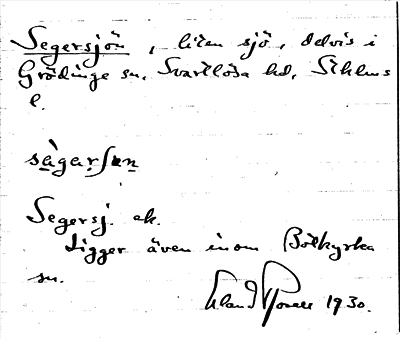 Segersjön, liten sjö, delvis i
Grödinge sn, Svartlösa hd, Sthlms
l.
sàgarʃөn
Segersj. ek.
Ligger även inom Botkyrka
sn.
Erland Rosell 1930.